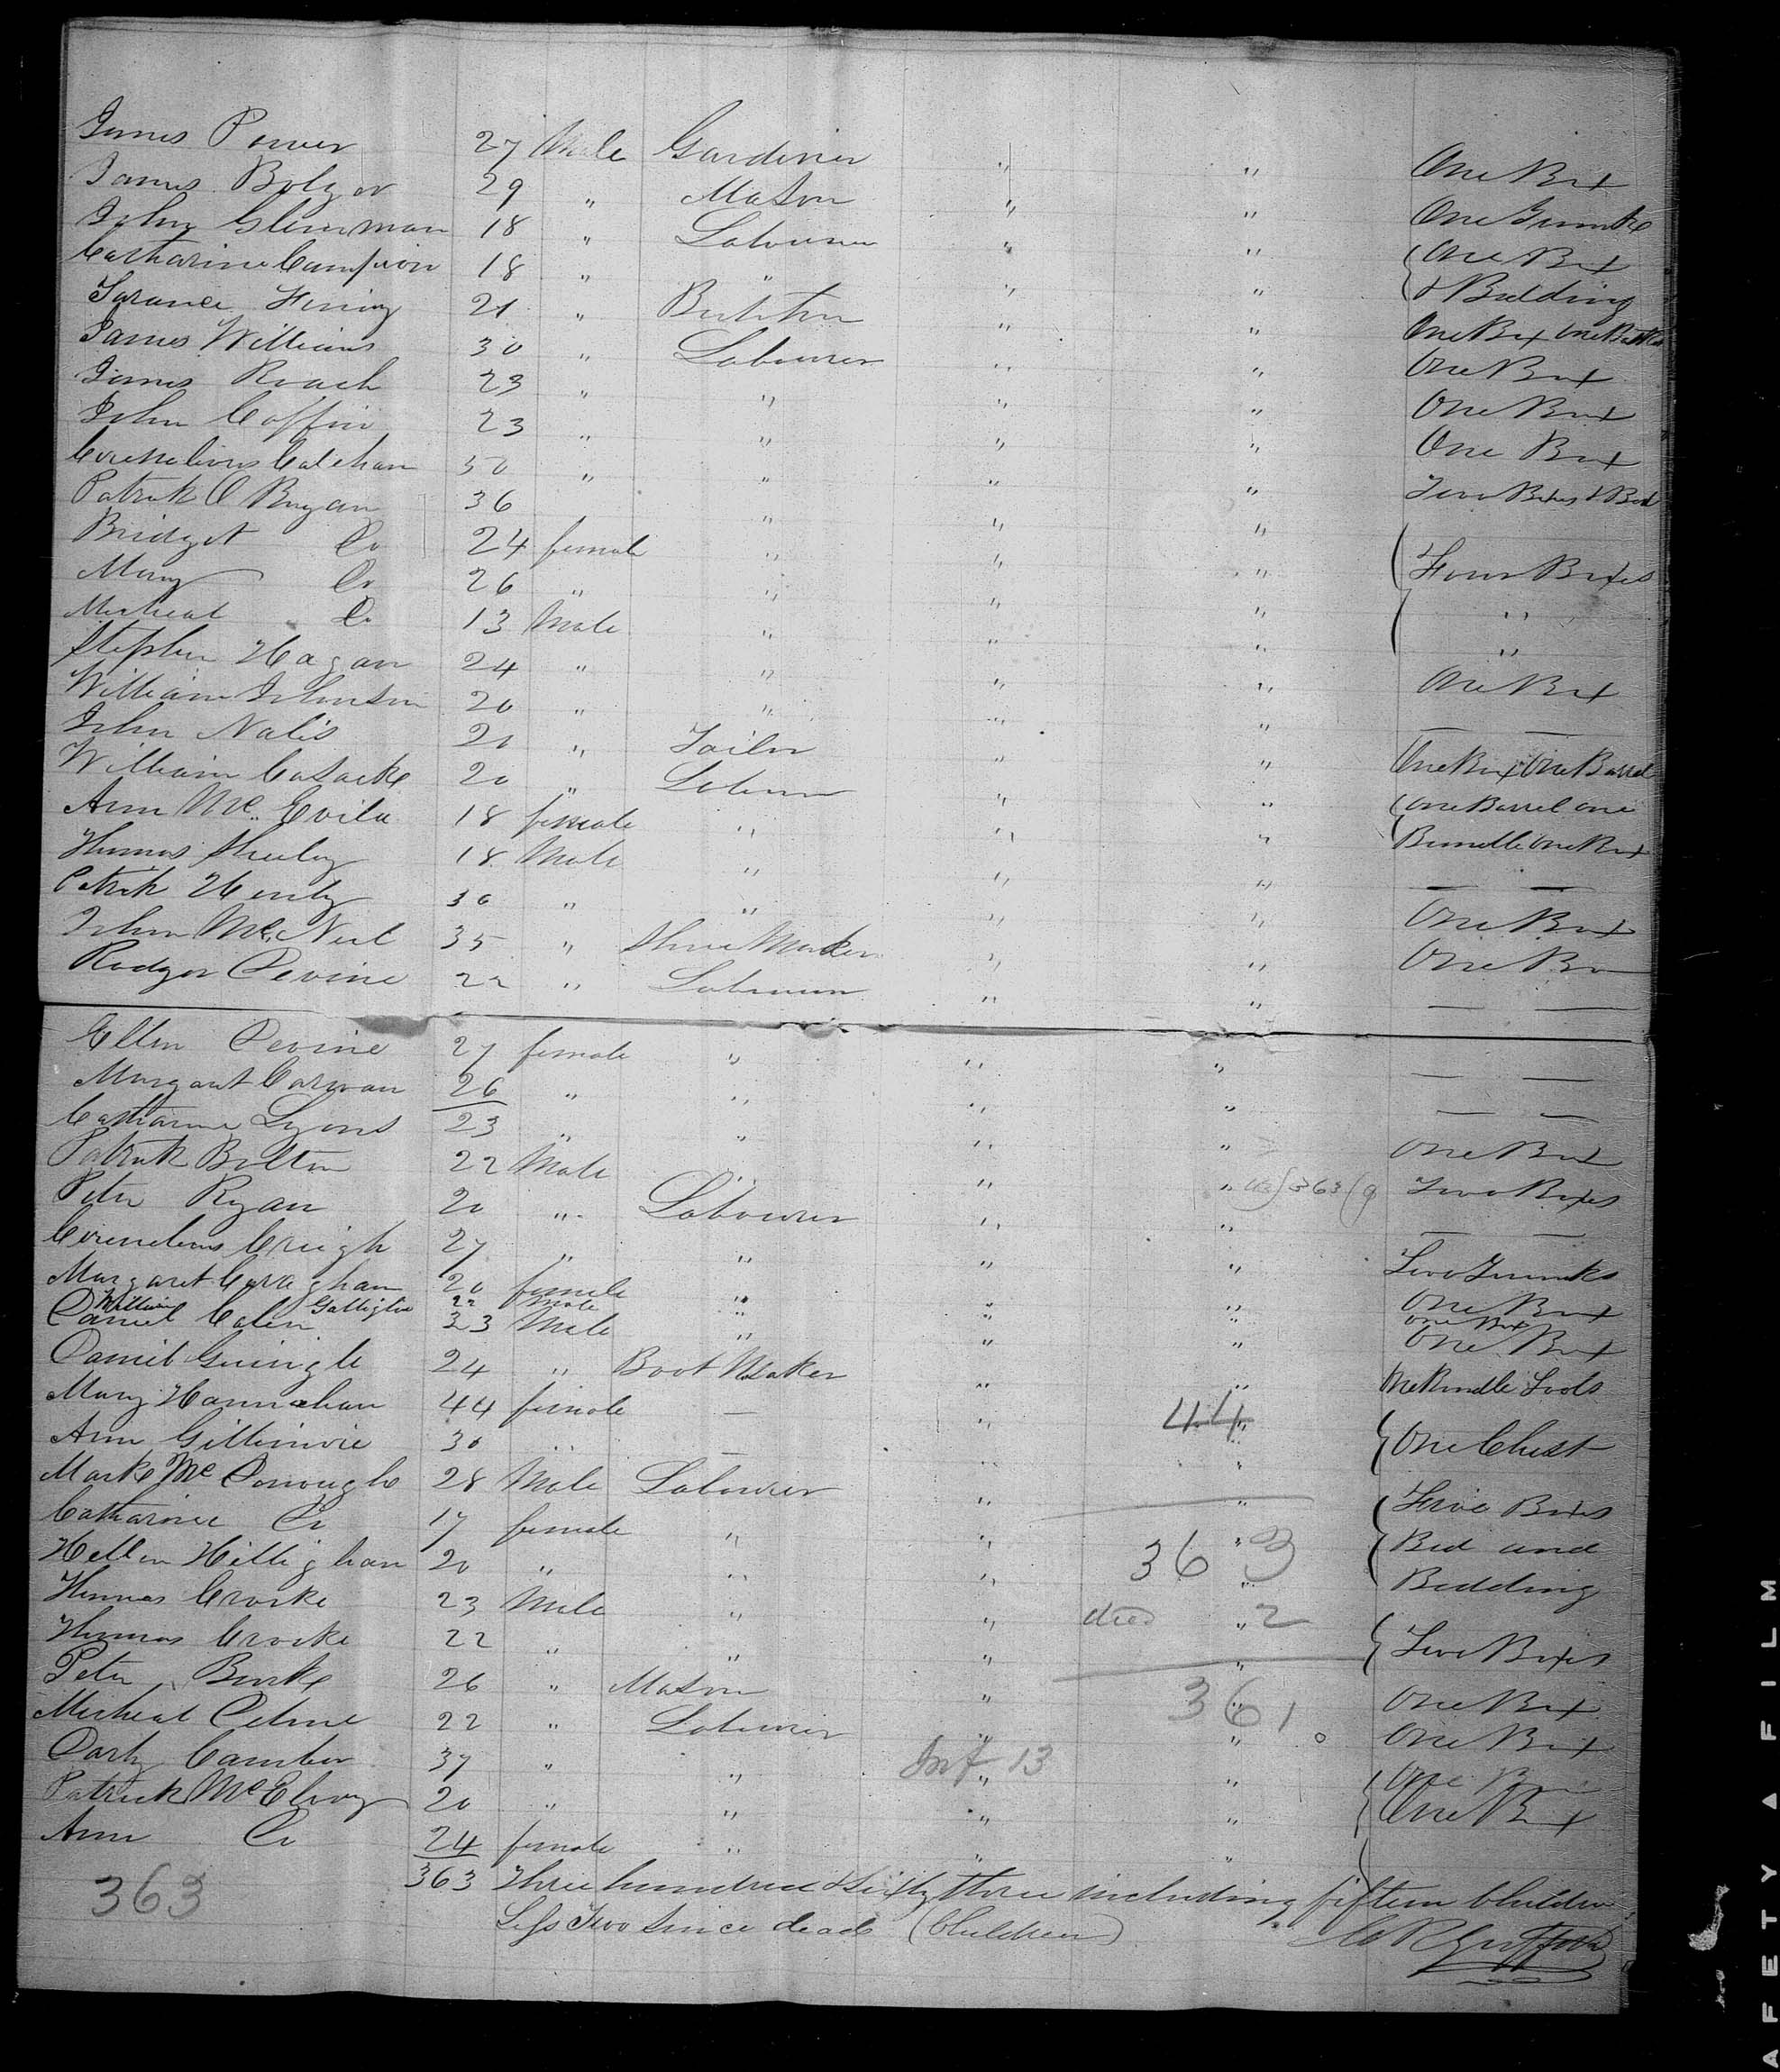 James Power 27 Male Gardiner " " One Box
James Bolger 29 " Mason " " One Trunke
John Glenman 18 " Labourer " " One Box
Catharine Campion 18 " " " " & Bedding
Henry 21 " Butcher " " One Box One
James Williams 30 " Labourer " " One Box
James Roach 23 " " " " One Box
John Coffin 23 " " " " One Box
Cornelious Calehan 30 " " " " Two Boxes & Bed
Patrick O Bryan 36 " " "
Bridget Do 24 female " " " Four Boxes
Mary Do 26 " " " " "
Micheal Do 13 Male " " " "
Stephen Hagan 24 " " " " One Box
William Johnson 20 " " " " — —
John Nalis 20 " Tailor " " One Box One Barrel
William Cusacke 20 " Labourer " " One Barrel One
Ann Mc Evila 18 female " " " Bundle One Box
Thomas Sheeley 18 Male " " " — —
Patrick Henly 30 " " " " One Box
John Mc Neil 35 " Shoe Maker " " One Box
Rodger Devine 22 " Labourer " " — —
Ellen Devine 27 female " " " — —
Margaret Carwan 26 " " " " — —
Catharine Lyons 23 " " " " One Box
Patrick Bolton 22 Male " " " 363 Two Boxes
Peter Ryan 20 " Labourer " " — —
Cornelious Creigh 27 " " " " Two Trunks
Margaret Carigham 20 female " " " One Box
William 22 Male " " " One Box
Daniel Colin 23 Male " " " One Box
Daniel Guingle 24 " Boot Maker " " One Bundle Tools
Mary Hannahan 44 female — " 44 " One Chest
Ann Gillimore 30 " — " "
Marke Mc Donough 28 Male Labourer " " Five Boxes
Catharine Do 17 female " " " Bed and
Hellen Hillighan 20 " " " 363 " Bedding
Thomas Crooke 23 Male " " died " 2
Thomas Crooke 22 " " " " Two Boxes
Peter Burke 26 " Mason " 361 " One Box
Micheal 22 " Labourer " " One Box
Camber 37 " " Inf 13 " " One Box
Patrick Mc Elroy 20 " " " " One Box
Ann Do 24 female " " "
363 363 Three hundred & sixty three including fifteen Children
Less Two Since dead (Children)